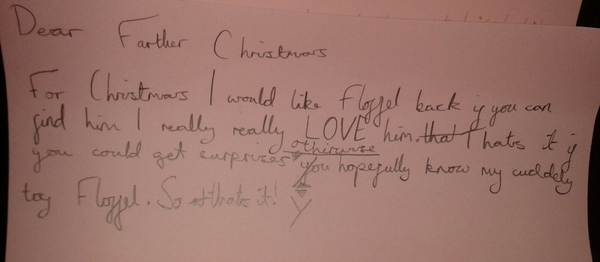 Dear Farther Christmas
For Christmas I would like Floffel back if you can
find him I really really LOVE him. that Thats it if
you could get surprizes otherwise you hopefully know my cuddely
toy Floffel. So thats it!